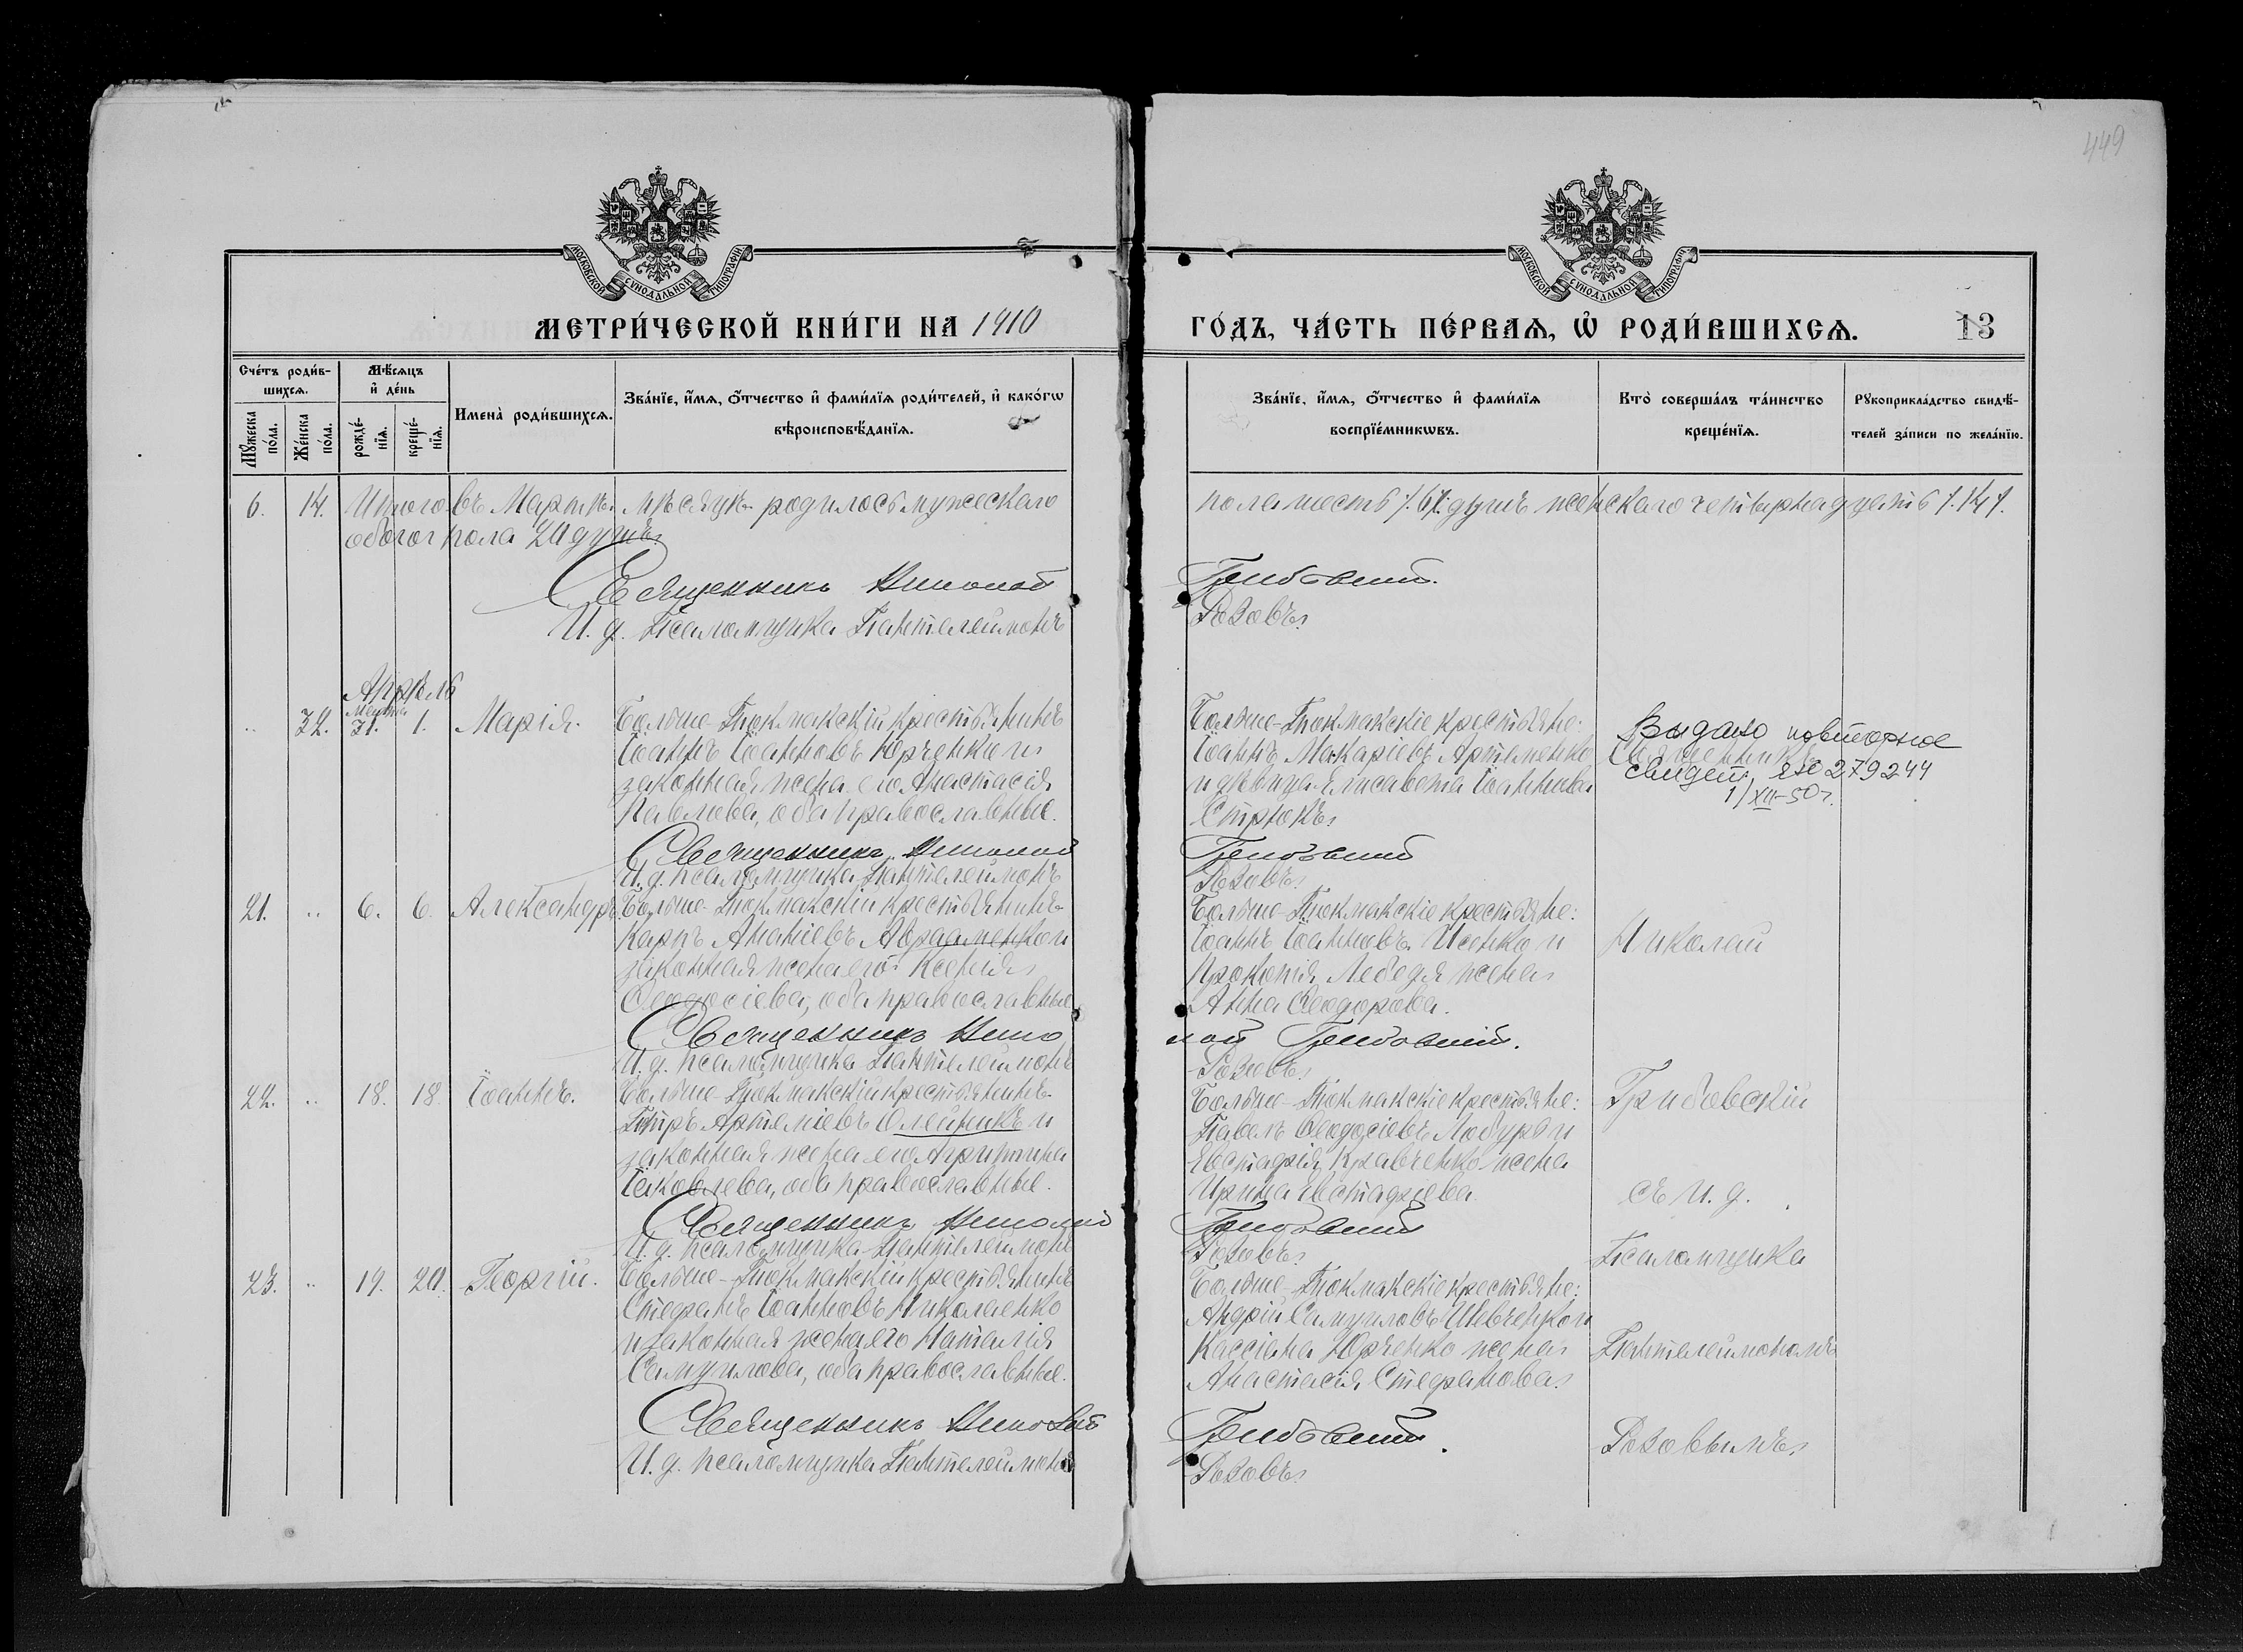 449
МОСКОВСКОЙ СѴНОДАЛЬНОЙ ТИПОГРАФІИ
МОСКОВСКОЙ СѴНОДАЛЬНОЙ ТИПОГРАФІИ
МЕТРИ́ЧЕСКОЙ КНИ́ГИ НА 1910
ГО́ДЪ, ЧА́СТЬ ПЕ́РВАѦ, Ѡ҆ РОДИ́ВШИХСѦ.
13
Сче́тъ роди́в-
шихсѧ.
Мꙋжеска по́ла.
Же́нска по́ла.
Мѣ́сѧцъ
и҆ де́нь
рожде́-
нїѧ.
креще́-
нїѧ.
Имена̀ роди́вшихсѧ.
Зва́нїе, и҆́мѧ, ѻ҆́тчество и҆ фами́лїѧ роди́телей, и҆ како́гѡ
вѣроисповѣ́данїѧ.
Зва́нїе, и҆́мѧ, ѻ҆́тчество и҆ фами́лїѧ
воспрїе́мникѡвъ.
Кто̀ соверша́лъ та́инство
креще́нїѧ.
Рꙋкоприкла́дство свидѣ́-
телей за́писи по жела́нїю.
6. 14. Итого въ Мартѣ мѣсяцѣ родилось мужескаго
пола шесть /6/ душъ женскаго четырнадцать /14/.
обоего пола 20 душъ.
Священникъ Николай
Грибовский.
И. д. Псаломщика Пантелеймонъ
Розовъ.
Апрѣль
Марта
.. 32. 31. 1. Марія.
Больше-Токмакскій крестьянинъ
Іоаннъ Іоанновъ Юрченко и
законная жена его Анастасія
Павлова, оба православные.
Больше-Токмакскіе крестьяне:
Іоаннъ Макаріевъ Артеменко
и дѣвица Елисавета Іоаннова
Стрюкъ.
Священникъ
Выдано повторное
свидет. № 279244
1/XII-50 г.
Священникъ Николай
Грибовский
И. д. псаломщика Пантелеймонъ
Розовъ.
21. .. 6. 6. Александръ.
Больше-Токмакскій крестьянинъ
Карпъ Ананіевъ Авраменко и
законная жена его Ксенія
Ѳеодосіева, оба православные.
Больше-Токмакскіе крестьяне:
Іоаннъ Іоанновъ Исенко и
Прокопія Лебедя жена
Анна Ѳеодорова.
Николай
Священникъ Нико
лай Грибовский.
И. д. псаломщика Пантелеймонъ
Розовъ.
22. .. 18. 18. Іоаннъ.
Больше-Токмакскій крестьянинъ
Петръ Артеміевъ Олейникъ и
законная жена его Агрипина
Іаковлева, оба православные.
Больше-Токмакскіе крестьяне:
Павелъ Ѳеодосіевъ Лобурь и
Евстафія Кравченко жена
Ирина Евстафіева.
Грибовскій
съ И. д.
Священникъ Николай
Грибовский
И. д. псаломщика Пантелеймонъ
Розовъ.
Псаломщика
23. .. 19. 20. Георгій.
Больше-Токмакскій крестьянинъ
Стефанъ Іоанновъ Николаенко
и законная жена его Наталія
Самуилова, оба православные.
Больше-Токмакскіе крестьяне:
Андрій Самуиловъ Шевченко и
Кассіана Юрченко жена
Анастасія Стефанова.
Пантелеймономъ
Священникъ Николай
Грибовский.
Розовымъ.
И. д. псаломщика Пантелеймонъ
Розовъ.